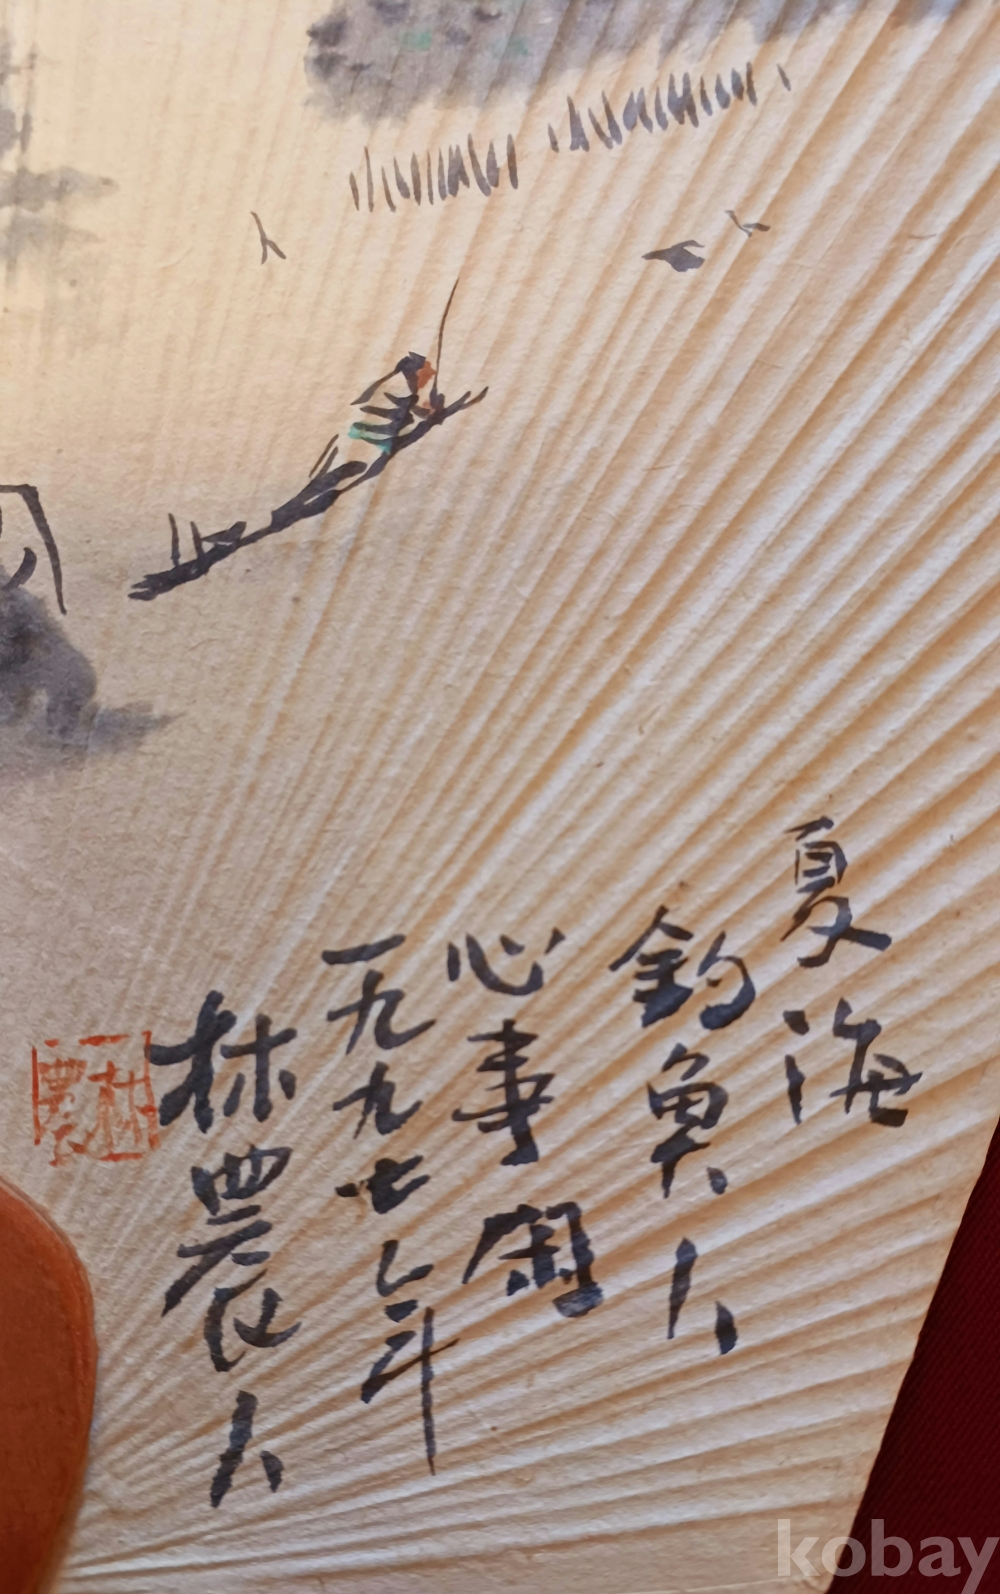 夏海
釣魚人
心事
一九九七年
林農人
林農
kobay